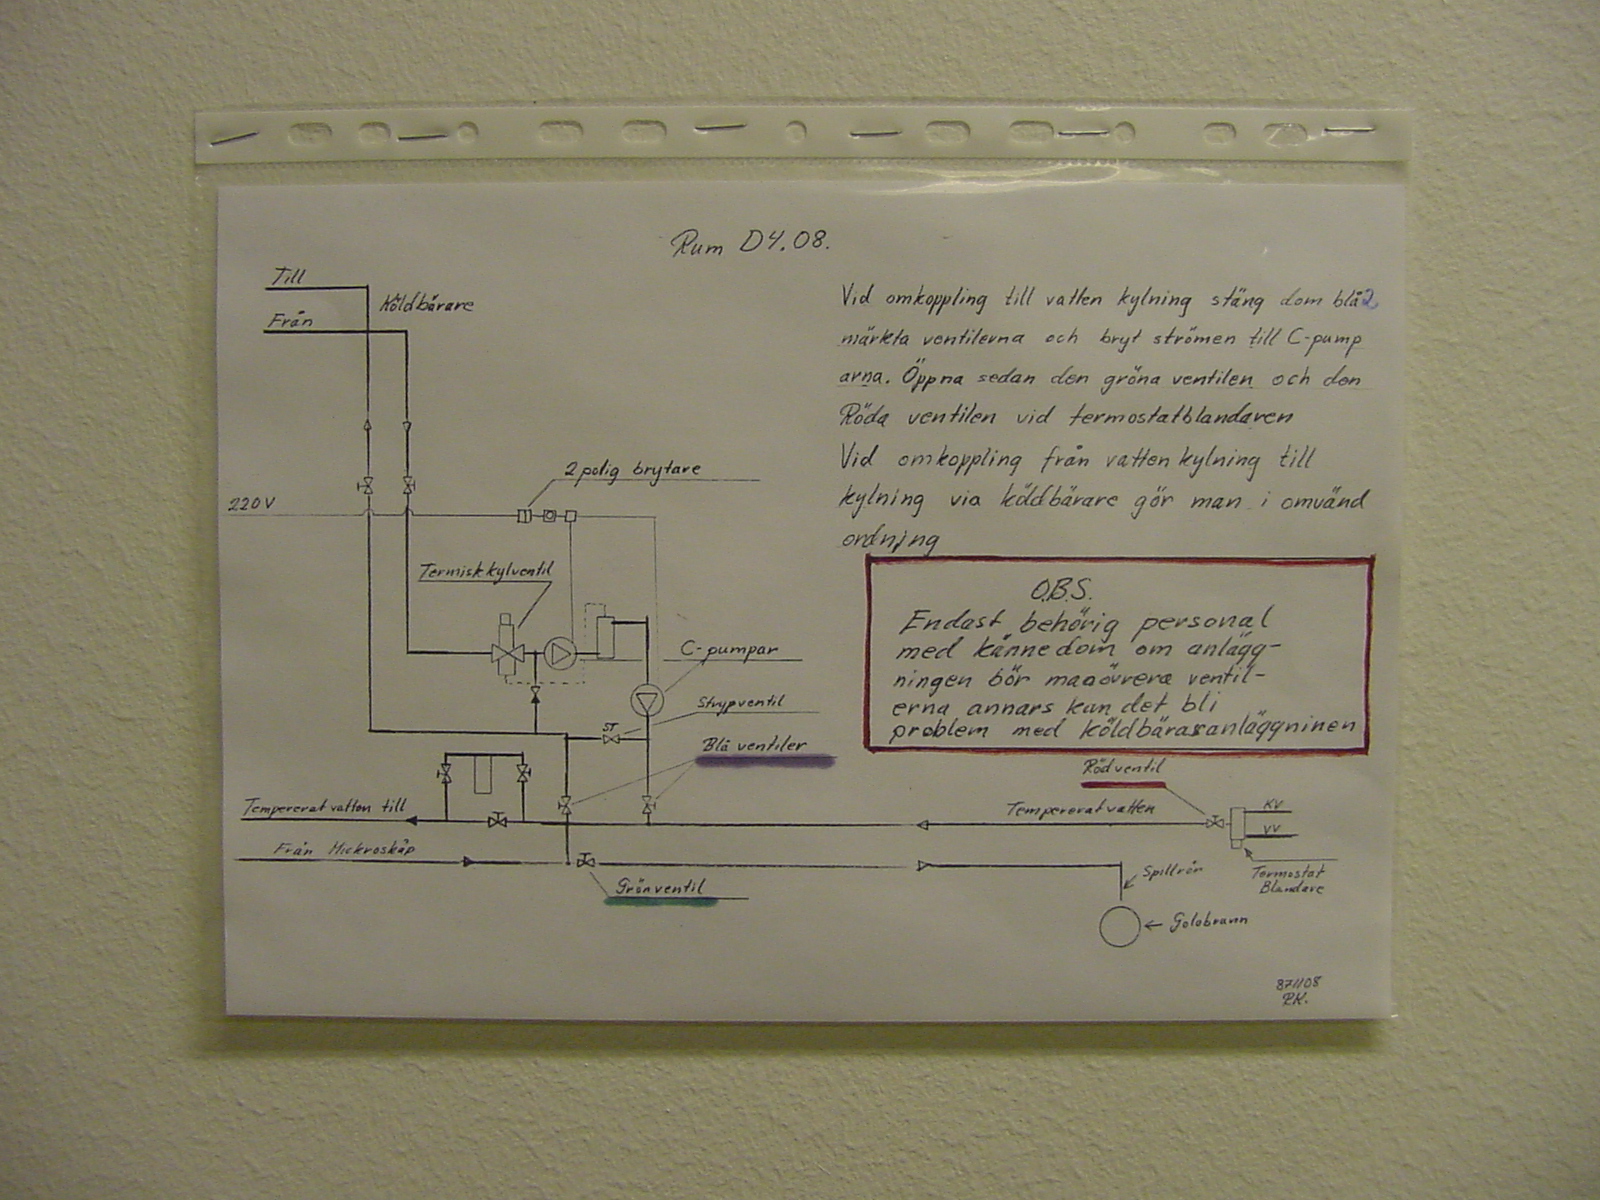 Rum D4.08.
Till
Köldbärare
Från
Vid omkoppling till vatten kylning stäng dom blå 2
märkta ventilerna och bryt strömen till C-pump
arna. Öppna sedan den gröna ventilen och den
Röda ventilen vid termostatblandaren
Vid omkoppling från vatten kylning till
kylning via köldbärare gör man i omvänd
ordning
2 polig brytare
220V
Termisk kylventil
C-pumpar
Strypventil
ST
Blå ventiler
O.B.S.
Endast behörig personal
med kännedom om anlägg-
ningen bör manövrera ventil-
erna annars kan det bli
problem med köldbäraranläggninen
Rödventil
Tempererat vatten till
Tempererat vatten
KV
VV
Från Mickroskåp
Grönventil
Spillrör
Termostat
Blandare
Golvbrunn
871108
R.K.